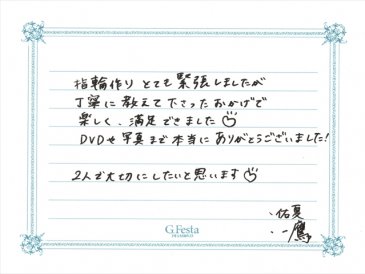 指輪作り とても緊張しましたが
丁寧に教えて下さったおかげで
楽しく、満足できました
DVDや写真まで本当にありがとうございました!
2人で大切にしたいと思います
G.Festa
・佑夏
・一鷹